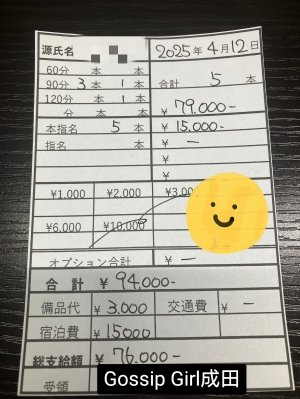 源氏名 2025年4月12日
60分 本 本
90分 3本 1本 合計 5 本
120分 本 1本 ¥ 79.000-
分 本 本 ¥ 15.000-
本指名 5 本 ¥ ―
指名 本 ¥
¥
¥1,000 ¥2,000 ¥3,0
¥6,000 ¥10,000
オプション合計 ¥ ―
合計 ¥ 94.000-
備品代 ¥ 3.000 交通費 ¥ ―
宿泊費 ¥ 15000
総支給額 ¥ 76.000-
受領
Gossip Girl成田